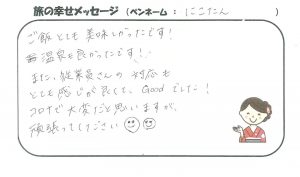 旅の幸せメッセージ（ペンネーム：にこたん）
ご飯とても美味しかったです！
お温泉も良かったです！
また、従業員さんの対応も
とても感じが良くて、Goodでした！
コロナで大変だと思いますが、
頑張ってください